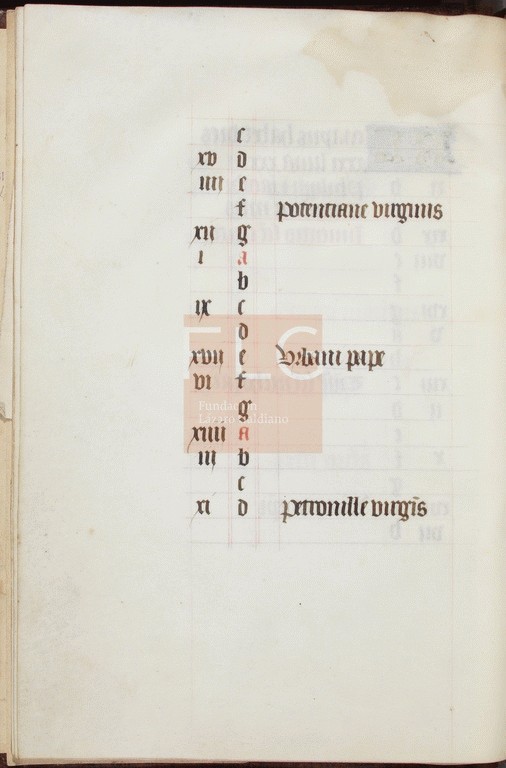 c
xv d
iiii e
f potentiane virginis
xii g
i a
b
ix c
d
xvii e Urbani pape
vi f
g
xiiii a
iii b
c
xi d petronille virgīs
FLG
Fundación
Lázaro Galdiano